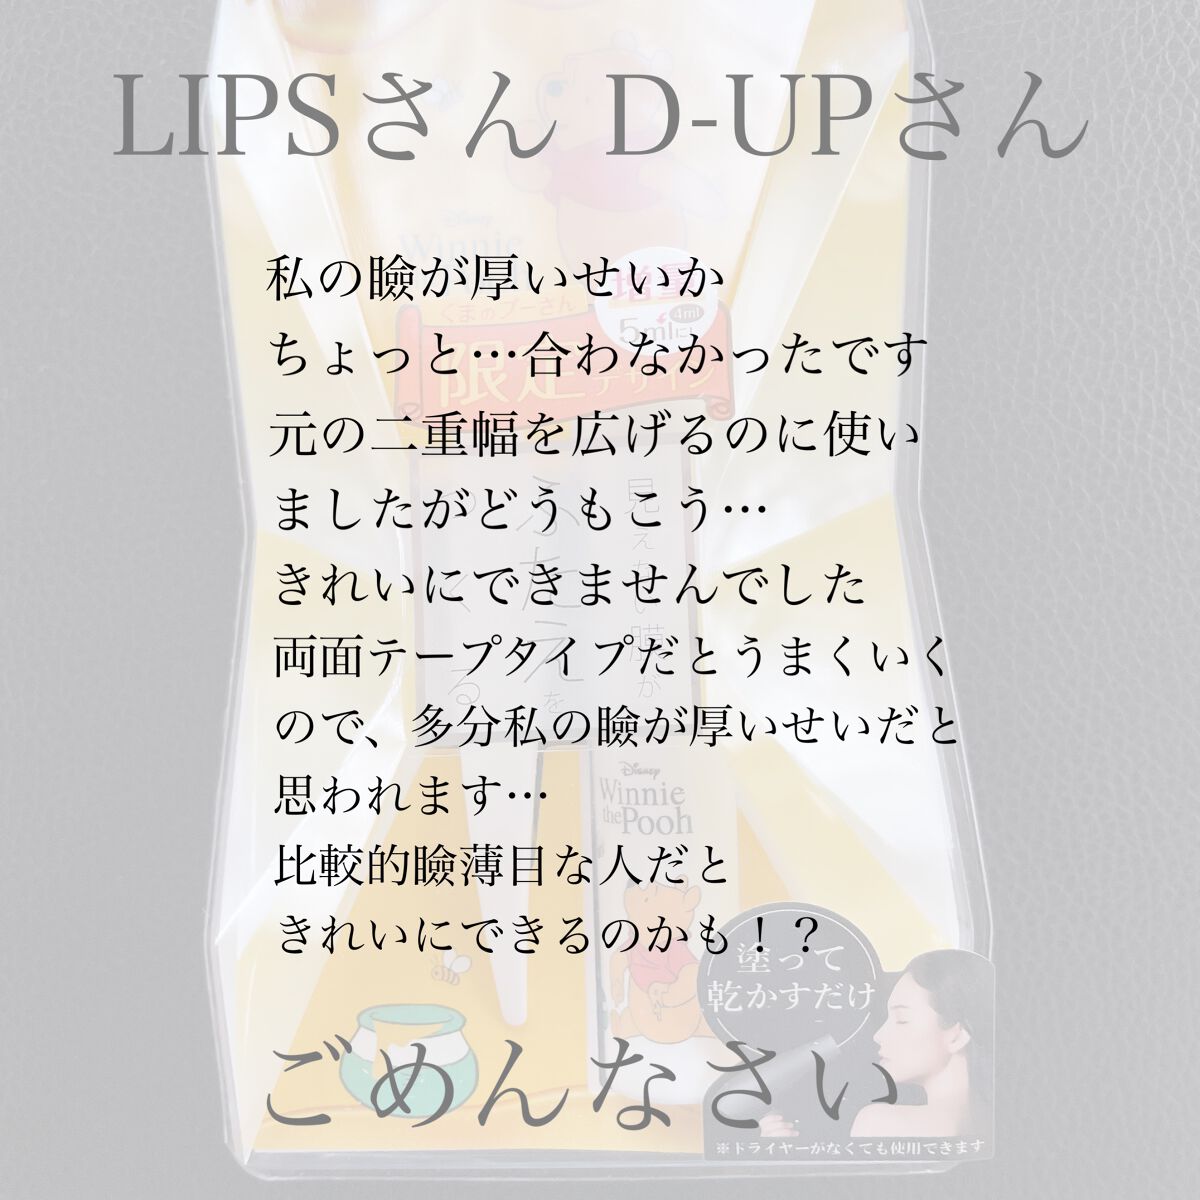 LIPSさん D-UPさん
私の瞼が厚いせいか
ちょっと…合わなかったです
元の二重幅を広げるのに使い
ましたがどうもこう…
きれいにできませんでした
両面テープタイプだとうまくいく
ので、多分私の瞼が厚いせいだと
思われます…
比較的瞼薄目な人だと
きれいにできるのかも！？
ごめんなさい
Disney
Winnie
くまのプーさん
増量
4ml
5mlに!
限定デザイン
見えない膜が
ふたえを
つくる
Disney
Winnie
the Pooh
塗って
乾かすだけ
※ドライヤーがなくても使用できます